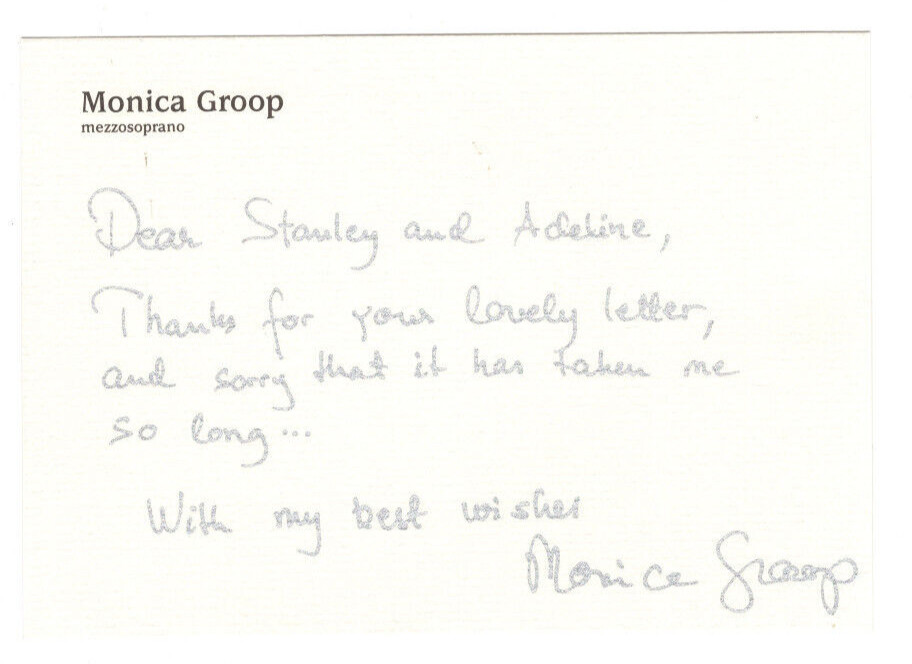 Monica Groop
mezzosoprano
Dear Stanley and Adeline,
Thanks for your lovely letter,
and sorry that it has taken me
so long...
With my best wishes
Monica Groop